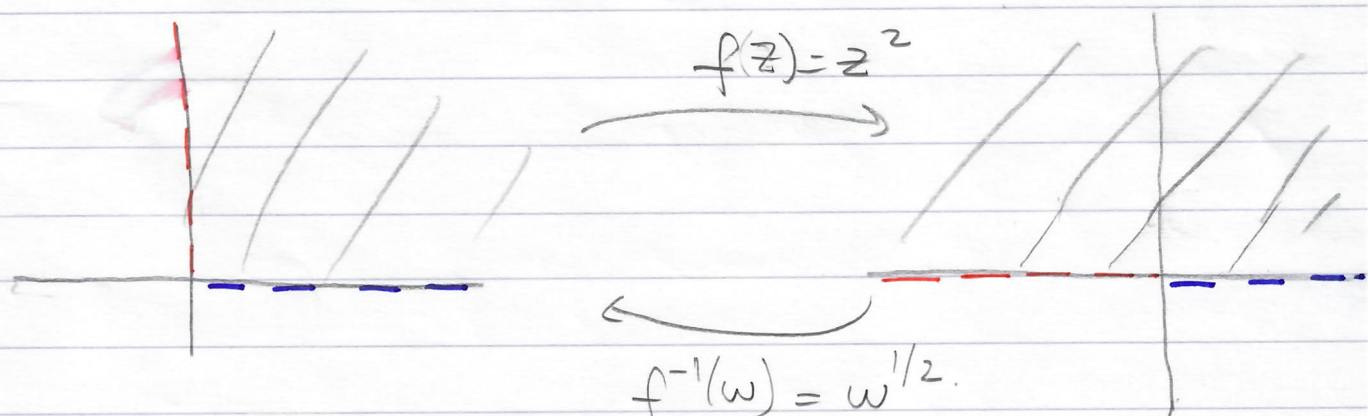 f(z)=z²
f⁻¹(w) = w^{1/2}.